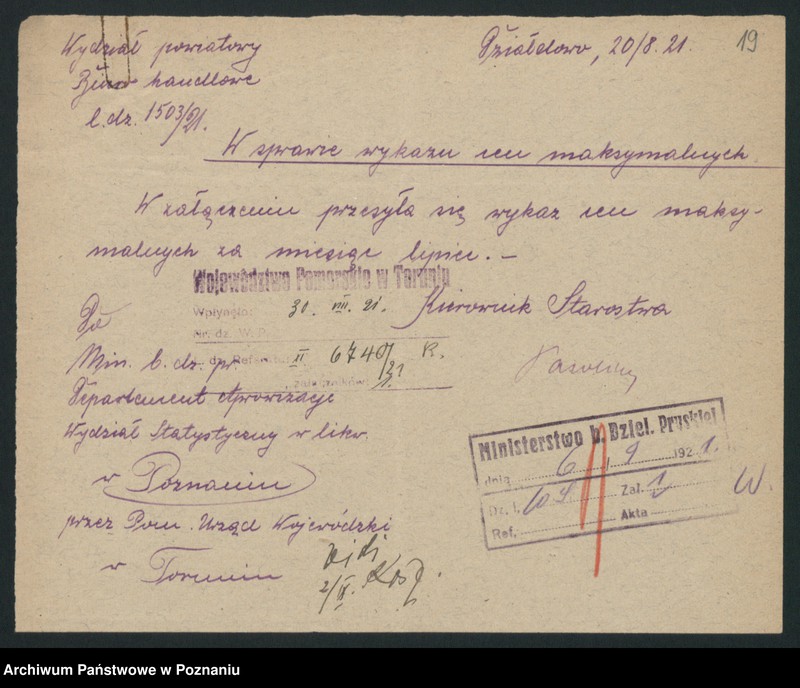 19
Wydział powiatowy
Działdowo, 20/8. 21.
Biuro handlowe
l. dz. 1503/21.
W sprawie wykazu cen maksymalnych.
W załączeniu przesyła się wykaz cen maksy-
malnych za miesiąc lipiec. –
Województwo Pomorskie w Toruniu
Wpłynęło: 30. VIII. 21.
Kierownik Starostwa
Nr. dz. W. P.
Do
dz. Referatu XI 6740/21 R.
Min. b. dz. pr.
załączników 1.
Departament Aprowizacje
Wydział Statystyczny w likw.
w Poznaniu
przez Pom. Urząd Wojewódzki
w Toruniu
2/IX.
Ministerstwo b. Dziel. Pruskiej
dnia 6/9 1921.
Dz. l. Zał. 1
Ref. Akta
W.
Archiwum Państwowe w Poznaniu